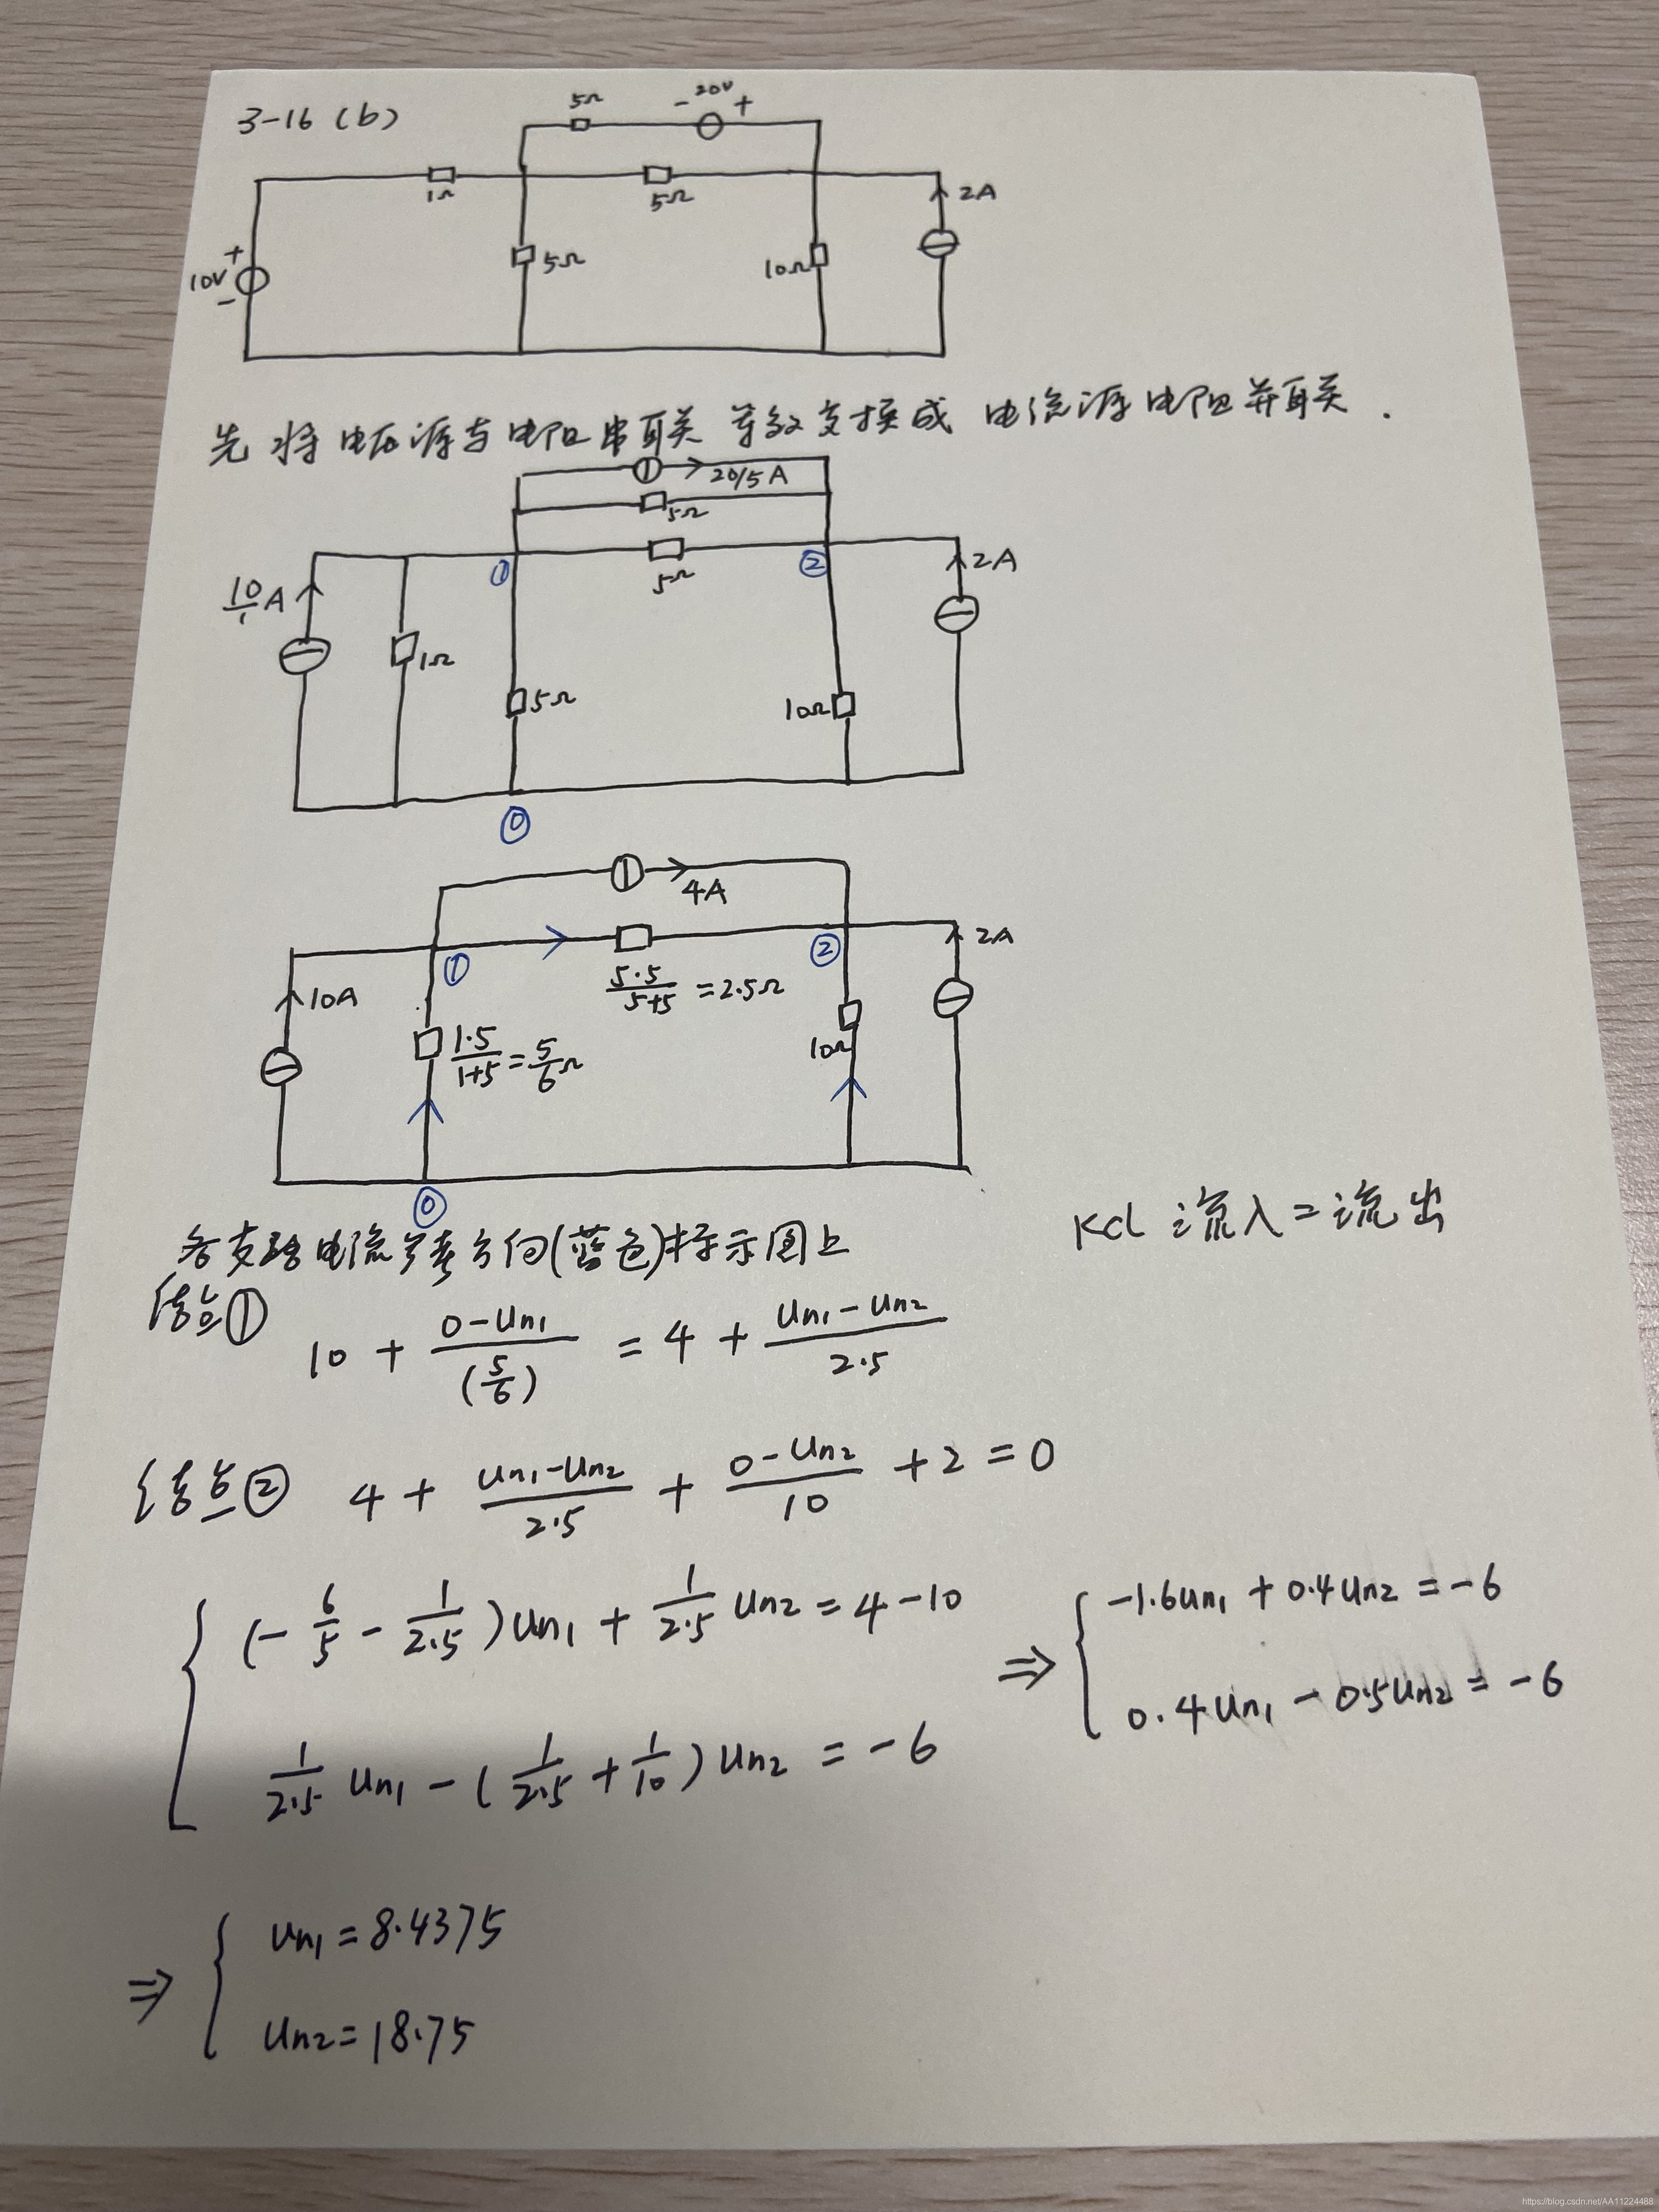 3-16 (b)
5Ω
- 20V +
1Ω
5Ω
2A
+
10V
-
5Ω
10Ω
先将电压源与电阻串联等效变换成 电流源电阻并联.
20/5 A
5Ω
①
5Ω
②
2A
10/1 A
1Ω
5Ω
10Ω
⓪
4A
①
②
2A
10A
5·5/5+5 = 2.5Ω
1·5/1+5 = 5/6 Ω
10Ω
⓪
KCL 流入=流出
各支路电流参考方向(蓝色)标示图上
结点①
10 + 0-Un1/(5/6) = 4 + Un1-Un2/2.5
结点② 4 + Un1-Un2/2.5 + 0-Un2/10 + 2 = 0
(- 6/5 - 1/2.5) Un1 + 1/2.5 Un2 = 4-10
⇒ -1.6Un1 + 0.4Un2 = -6
0.4Un1 - 0.5Un2 = -6
1/2.5 Un1 - (1/2.5 + 1/10) Un2 = -6
⇒ Un1 = 8.4375
Un2 = 18.75
https://blog.csdn.net/AA11224488